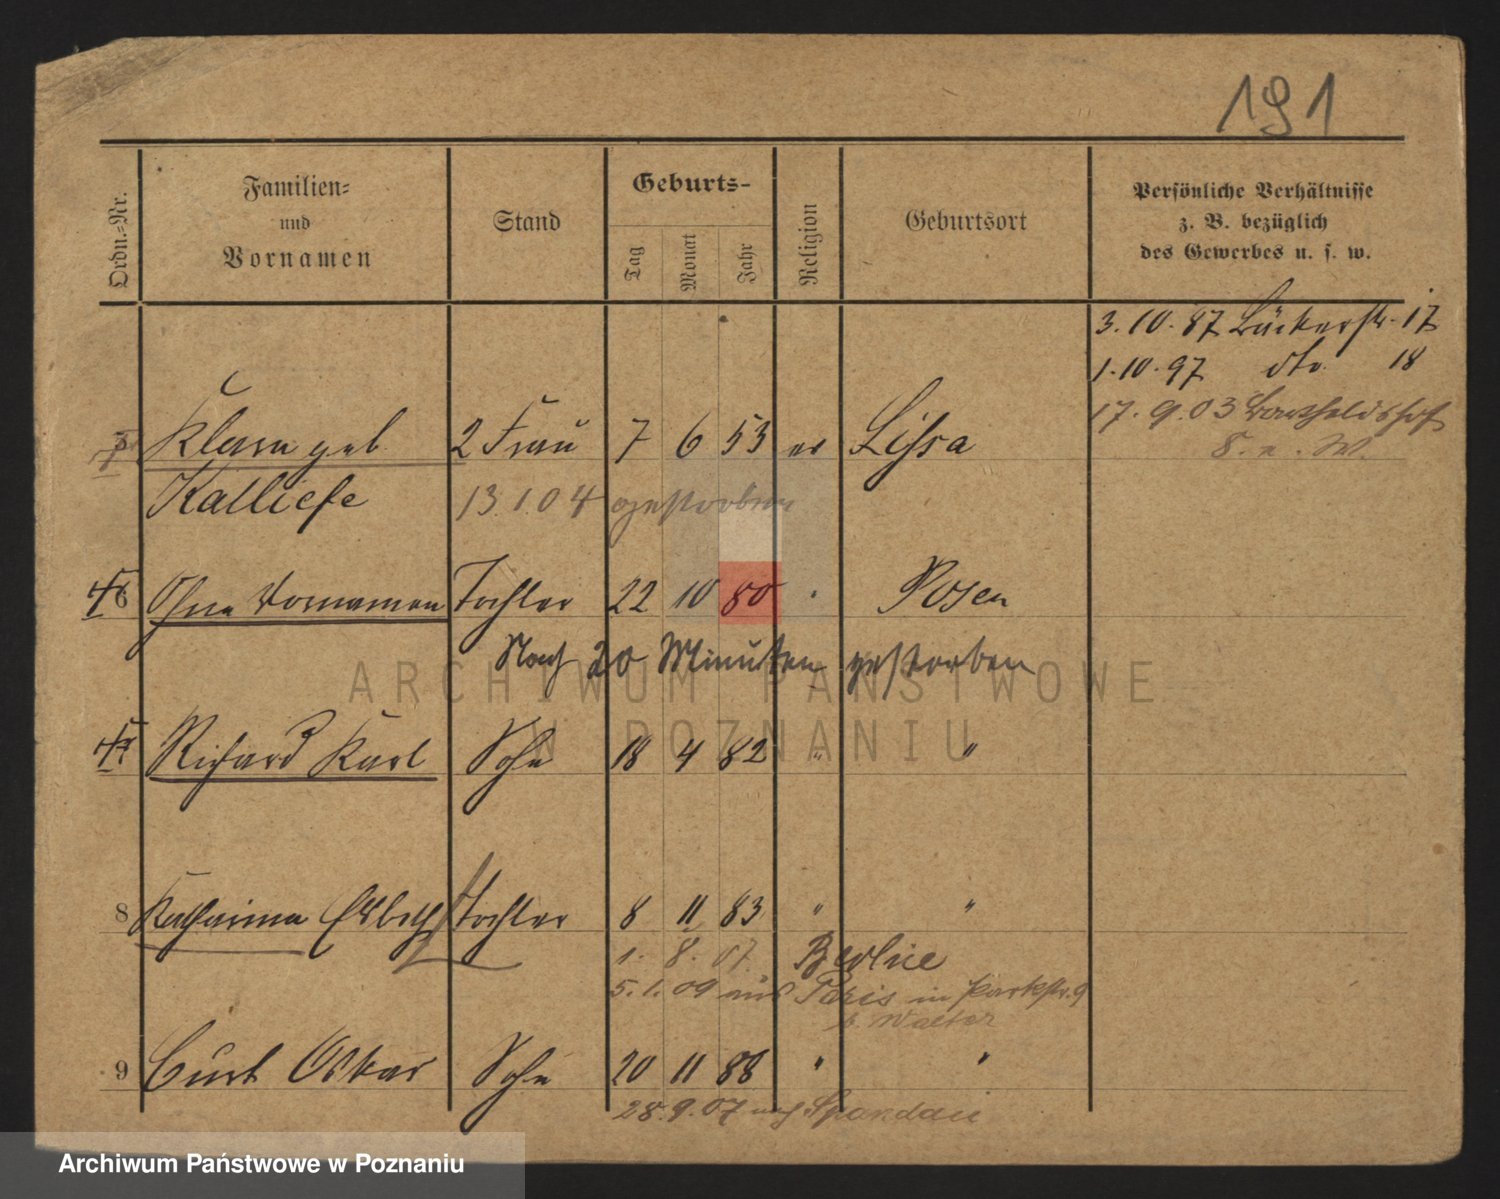 191
Ordn.-Nr.
Familien-
und
Vornamen
Stand
Geburts-
Tag
Monat
Jahr
Religion
Geburtsort
Persönliche Verhältnisse
z. B. bezüglich
des Gewerbes u. s. w.
3.10.87 Bäckerstr. 17
1.10.97 dto. 18
17.9.03
5 Klara geb 2 Frau 7 6 53 ev Lissa
Kalliefe 13.1.04 gestorben
6 Ohne Vornamen Tochter 22 10 80 " Posen
Nach 20 Minuten gestorben
7 Richard Karl Sohn 18 4 82 " "
8 Katharina Elsbeth Tochter 8 11 83 " "
1. 8. 07 Berlin
5.1.09 aus Paris in Parkstr. 9
b. Walter
9 Curt Oskar Sohn 20 11 88 " "
28.9.07 nach Spandau
ARCHIWUM PAŃSTWOWE
W POZNANIU
Archiwum Państwowe w Poznaniu